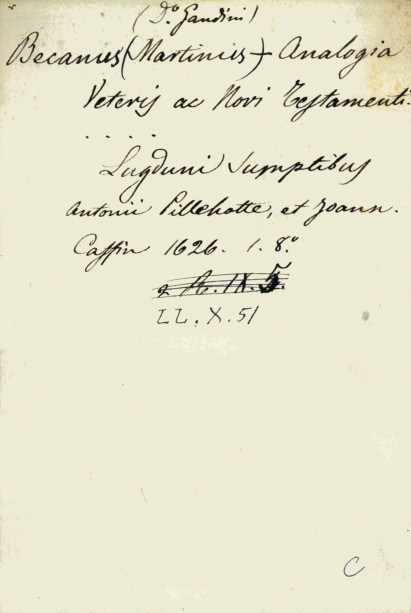 (Dº Gandini)
Becanus (Martinus) + Analogia
Veteris ac Novi Testamenti.
. . . . .
Lugduni Sumptibus
Antonii Pillehotte, et Joann.
Caffin 1626. 1. 8.º
R. IX. 5.
LL. X. 51
C